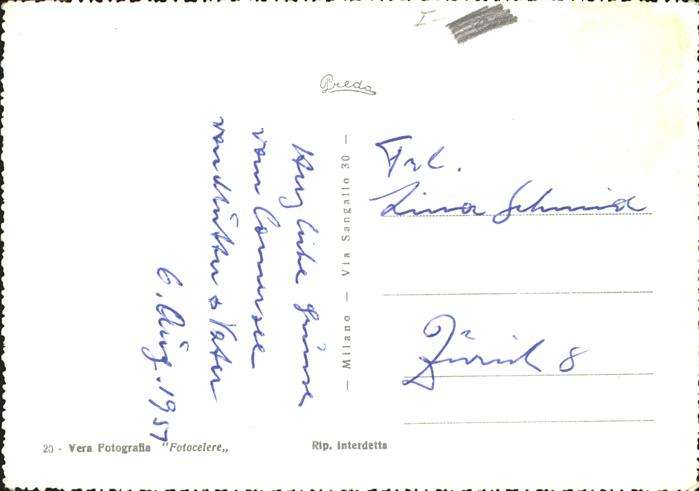 I
Preda
Herzliche Grüsse
vom Comersee
von Mutter & Vater
6. Aug. 1957
— Milano — Via Sangallo 30 —
Frl.
Lina Schmid
Zürich 8
20 - Vera Fotografia "Fotocelere„
Rip. interdetta